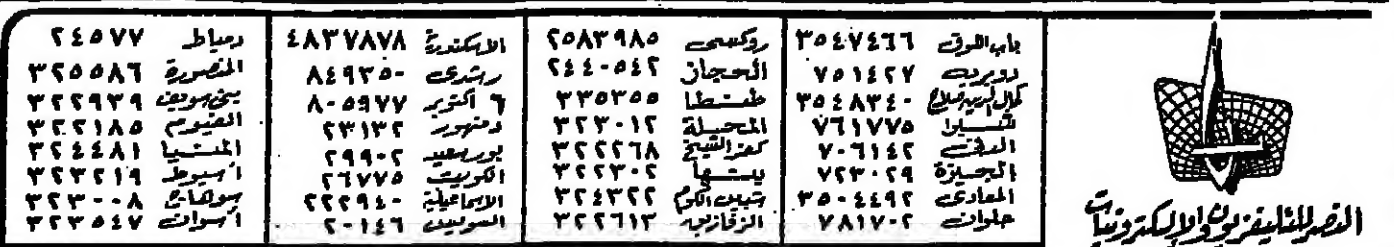 باب اللوق ٣٥٤٧٤٦٦
دوبريه ٧٥١٤٢٧
كمال الدين صلاح ٣٥٤٨٣٤٠
شبرا ٧٦١٧٧٥
الدقى ٧٠٦١٤٢
الجيزة ٧٢٣٠٢٩
المعادى ٣٥٠٤٤٩٢
حلوان ٧٨١٧٠٢
روكسى ٢٥٨٣٩٨٥
الحجاز ٢٤٤٠٥٤٢
طنطا ٣٣٥٣٥٥
المحلة ٣٢٣٠١٢
كفر الشيخ ٣٢٢٢٦٨
بنها ٣٢٢٣٠٢
شبين الكوم ٣٢٤٣٢٢
الزقازيق ٣٢٢٦١٣
الاسكندرية ٤٨٣٧٨٧٨
رشدى ٨٤٩٣٥٠
٦ أكتوبر ٨٠٥٩٧٧
دمنهور ٢٣١٣٢
بورسعيد ٢٩٩٠٢
الكويت ٢٦٧٧٥
الاسماعيلية ٢٢٢٩٤٠
السويس ٢٠١٤٦
دمياط ٢٤٥٧٧
المنصورة ٣٢٥٥٨٦
بنى سويف ٣٢٢٩٣٩
الفيوم ٣٢٢١٨٥
المنيا ٣٢٤٤٨١
أسيوط ٣٢٣٢١٩
سوهاج ٣٢٣٠٠٨
أسوان ٣٢٣٥٤٧
النصر للتليفزيون والإلكترونيات